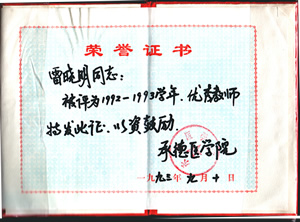 荣誉证书
雷晓明同志:
被评为1992-1993学年、优秀教师
特发此证、以资鼓励.
承德医学院
一九九三年九月十日